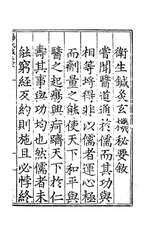 衛生鍼灸玄機秘要敘
嘗聞醫道通於儒而其功與
相等埓得非以儒者運心極
而劑量之能使天下和平與
醫之起癃興疴躋天下於仁
壽其事與功均也然儒者未
能窮經反約則施且必悖終